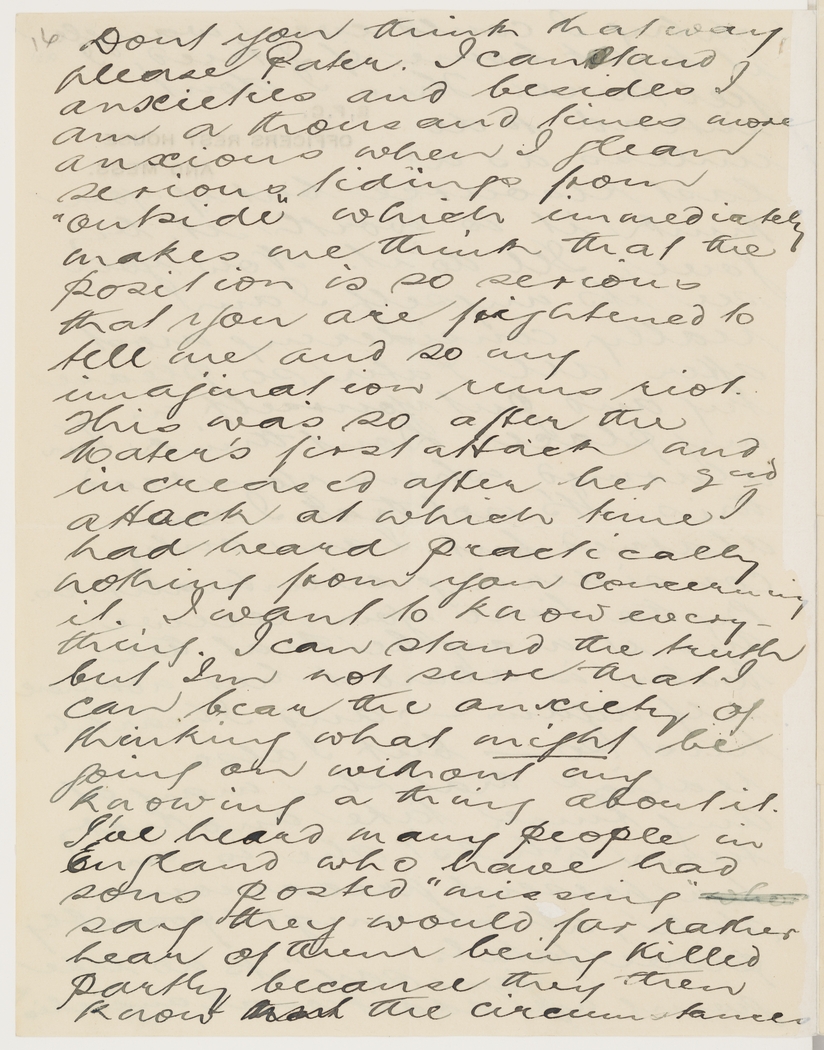 Dont you think that way
please Pater. I can stand
anxieties and besides I
am a thousand times more
anxious when I glean
serious tidings from
"outside" which immediately
makes me think that the
position is so serious
that you are frightened to
tell me and so my
imagination runs riot.
This was so after the
Mater's first attack and
increased after her 2nd
attack at which time I
had heard practically
nothing from you concerning
it. I want to know every-
thing. I can stand the truth
but I'm not sure that I
can bear the anxiety of
thinking what might be
going on without my
knowing a thing about it.
I've heard many people in
England who have had
sons posted "missing"
say they would far rather
hear of them being killed
partly because they then
know the circumstances